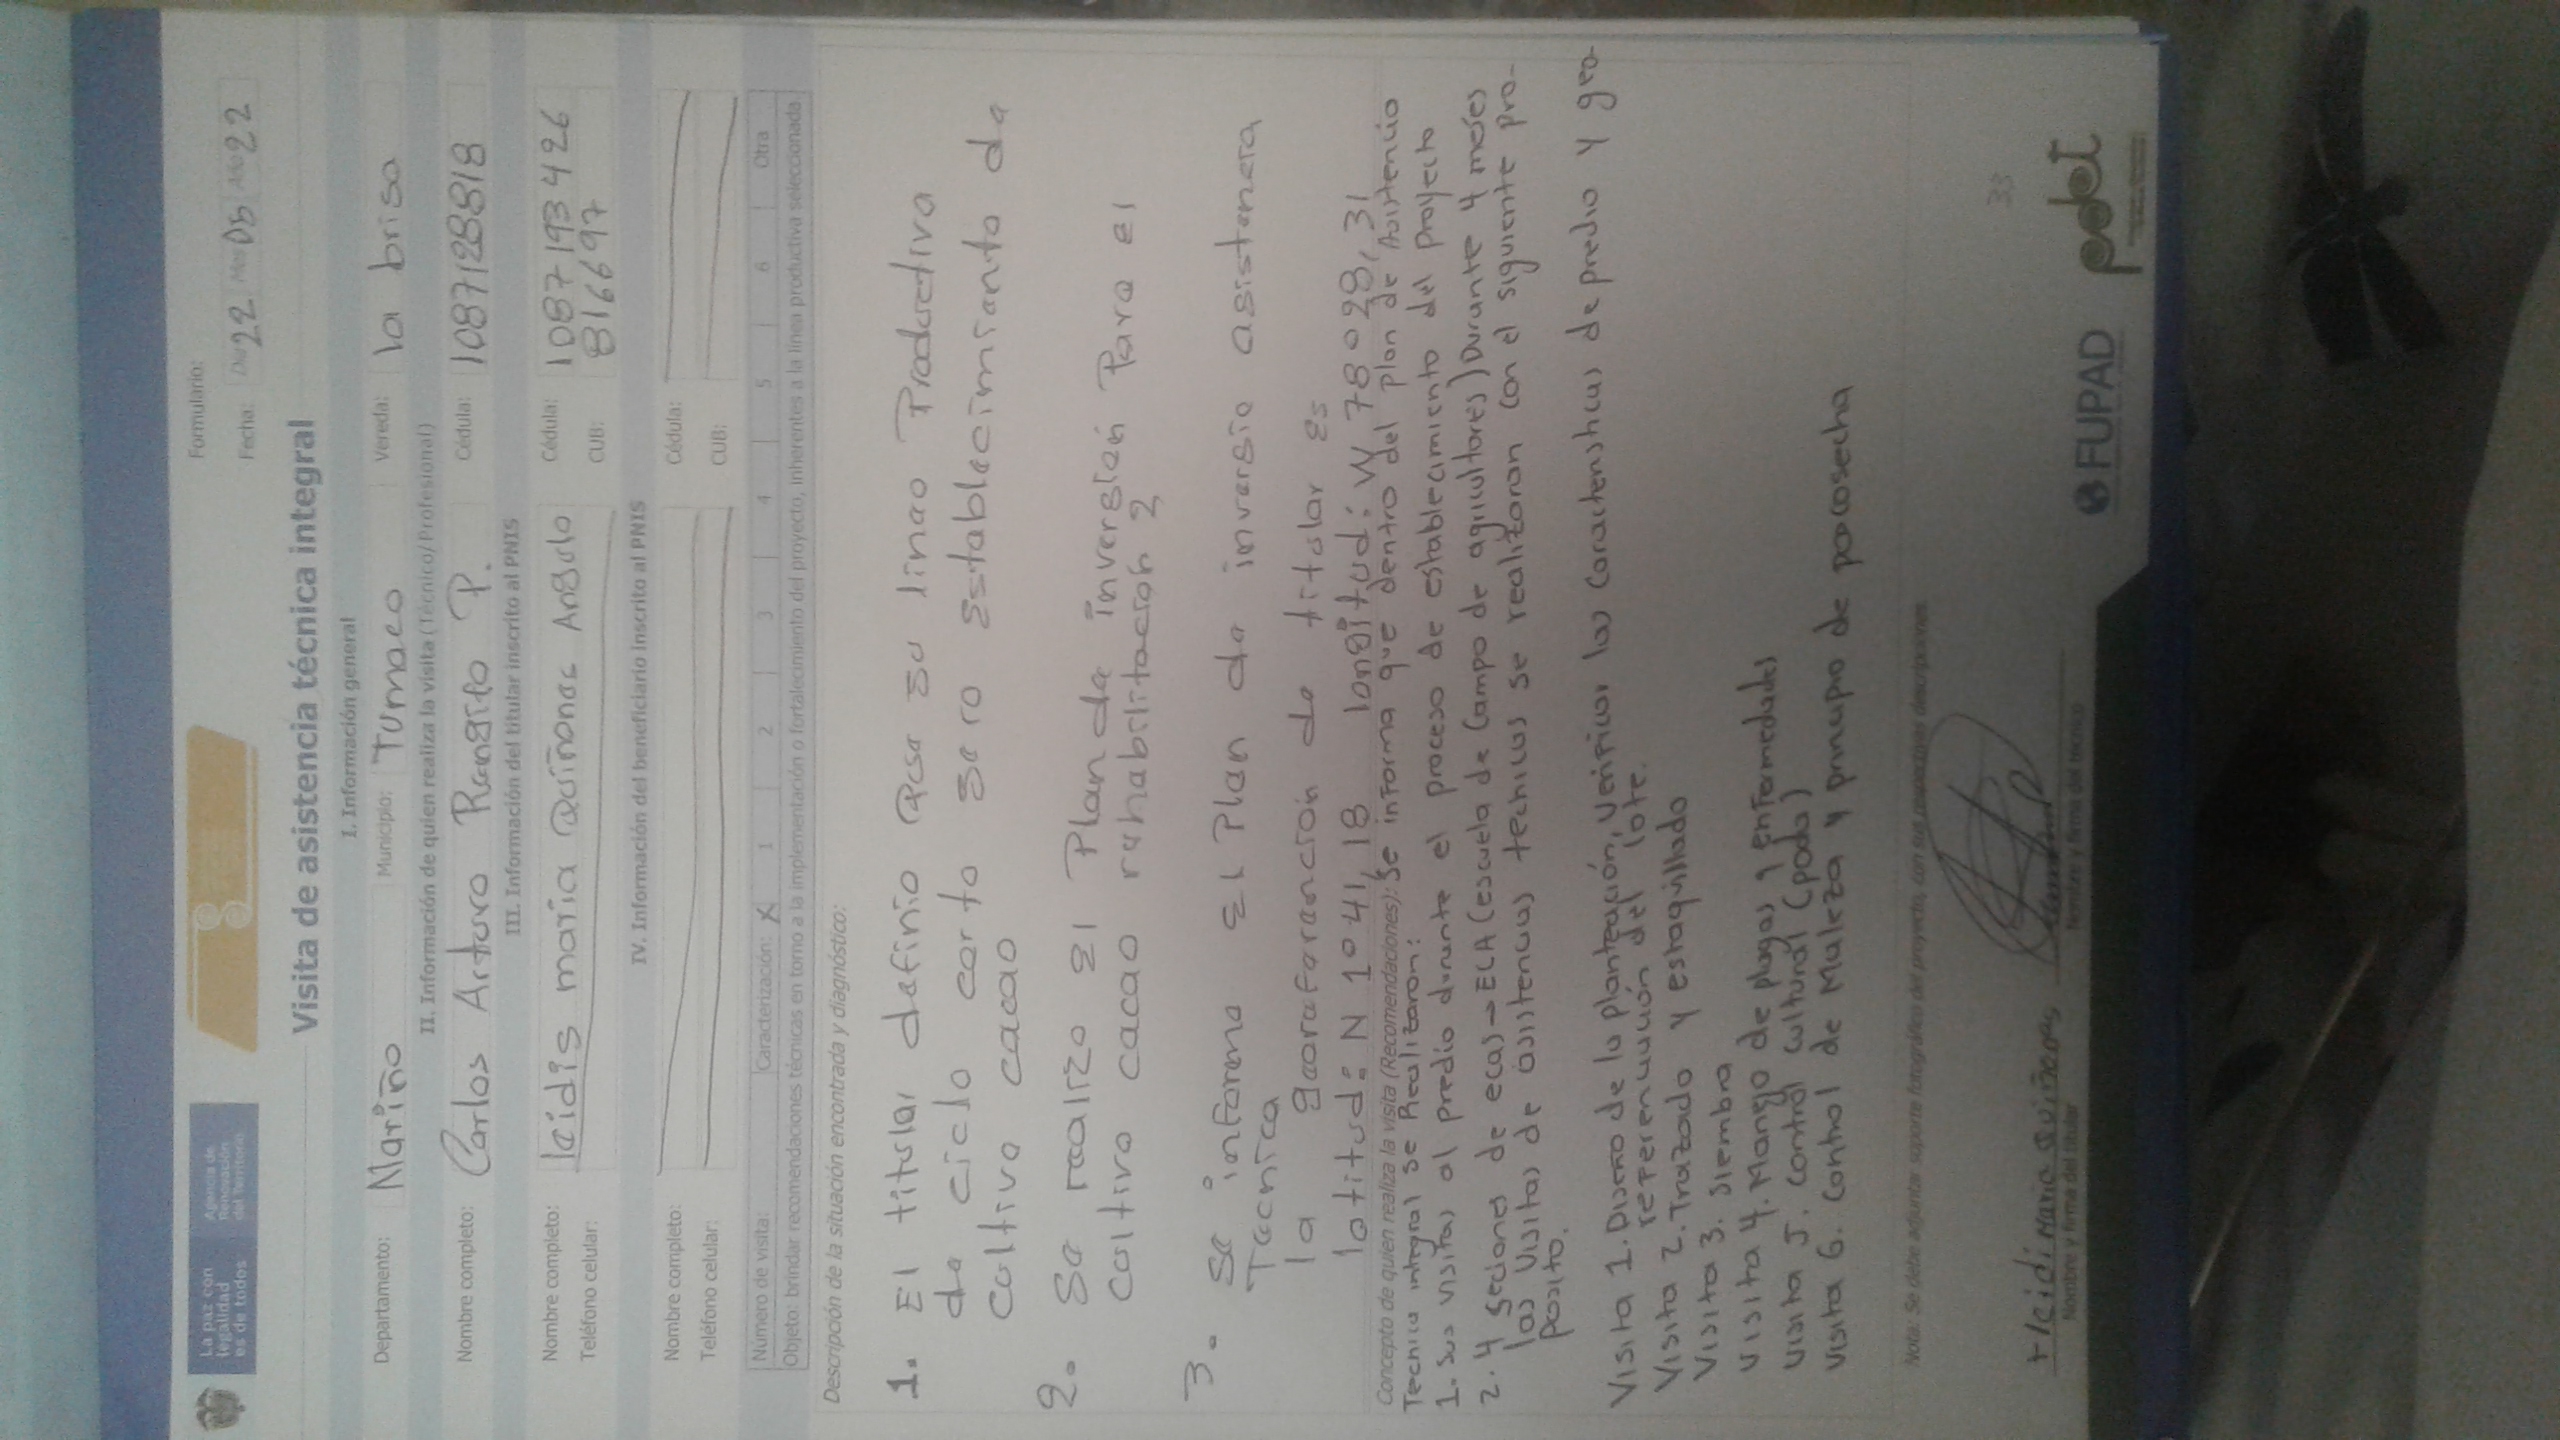 La paz con
legalidad
es de todos
Agencia de
Renovación
del Territorio
Formulario:
Fecha: Día 22 Mes 06 Año 22
Visita de asistencia técnica integral
I. Información general
Departamento: Nariño Municipio: Tumaco Vereda: la brisa
II. Información de quien realiza la visita (Técnico/Profesional)
Nombre completo: Carlos Arturo Rengifo P. Cédula: 1087128818
III. Información del titular inscrito al PNIS
Nombre completo: leidis maria Quiñones Angulo Cédula: 1087193426
Teléfono celular: CUB: 816697
IV. Información del beneficiario inscrito al PNIS
Nombre completo: Cédula:
Teléfono celular: CUB:
Número de visita: Caracterización: X 1 2 3 4 5 6 Otra
Objeto: brindar recomendaciones técnicas en torno a la implementación o fortalecimiento del proyecto, inherentes a la línea productiva seleccionada
Descripción de la situación encontrada y diagnóstico:
1. El titular definio qese su linao Productiva
de ciclo corto sero Establecimiento de
Cultivo cacao
2. Se realizo El Plan de inversion Para el
Cultivo cacao rehabilitacion 2
3. Se informo El Plan de inversio asistenera
Tecnica
la georeferencion de titular Es
latitud: N 1° 41, 18 longitud: W 78° 0 28, 31
Concepto de quien realiza la visita (Recomendaciones): Se informa que dentro del plan de Asistencia
Tecnica integral se Realizaron:
1. sus visitas al predio durante el proceso de establecimiento del proyecto
2. 4 seciones de ecas → ECA (escuela de campo de agricultores) Durante 4 meses
las visitas de asistencias technicas se realizaran con el siguiente pro-
posito.
Visita 1. Diseño de la planteación, verificar las caracteristicas de predio y geo-
referenciación del lote.
Visita 2. Trazado y estaquillado
Visita 3. siembra
Visita 4. Manejo de plagas y enfermedades
Visita 5. control cultural (poda)
Visita 6. Control de Maleza y principio de poscosecha
Nota: Se debe adjuntar soporte fotográfico del proyecto, con sus respectivas descripciones
33
Nombre y firma del titular
Nombre y firma del técnico
FUPAD
pdet